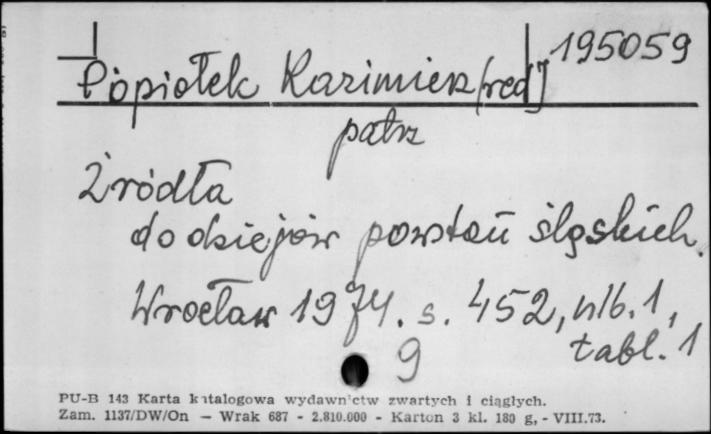 195059
Popiołek Kazimierz [red]
patrz
Źródła
do dziejów powstań śląskich.
Wrocław 1974. s. 452, nlb. 1,
tabl. 1
9
PU-B 143 Karta katalogowa wydawnictw zwartych i ciągłych.
Zam. 1137/DW/On — Wrak 687 - 2.810.000 - Karton 3 kl. 180 g, - VIII.73.